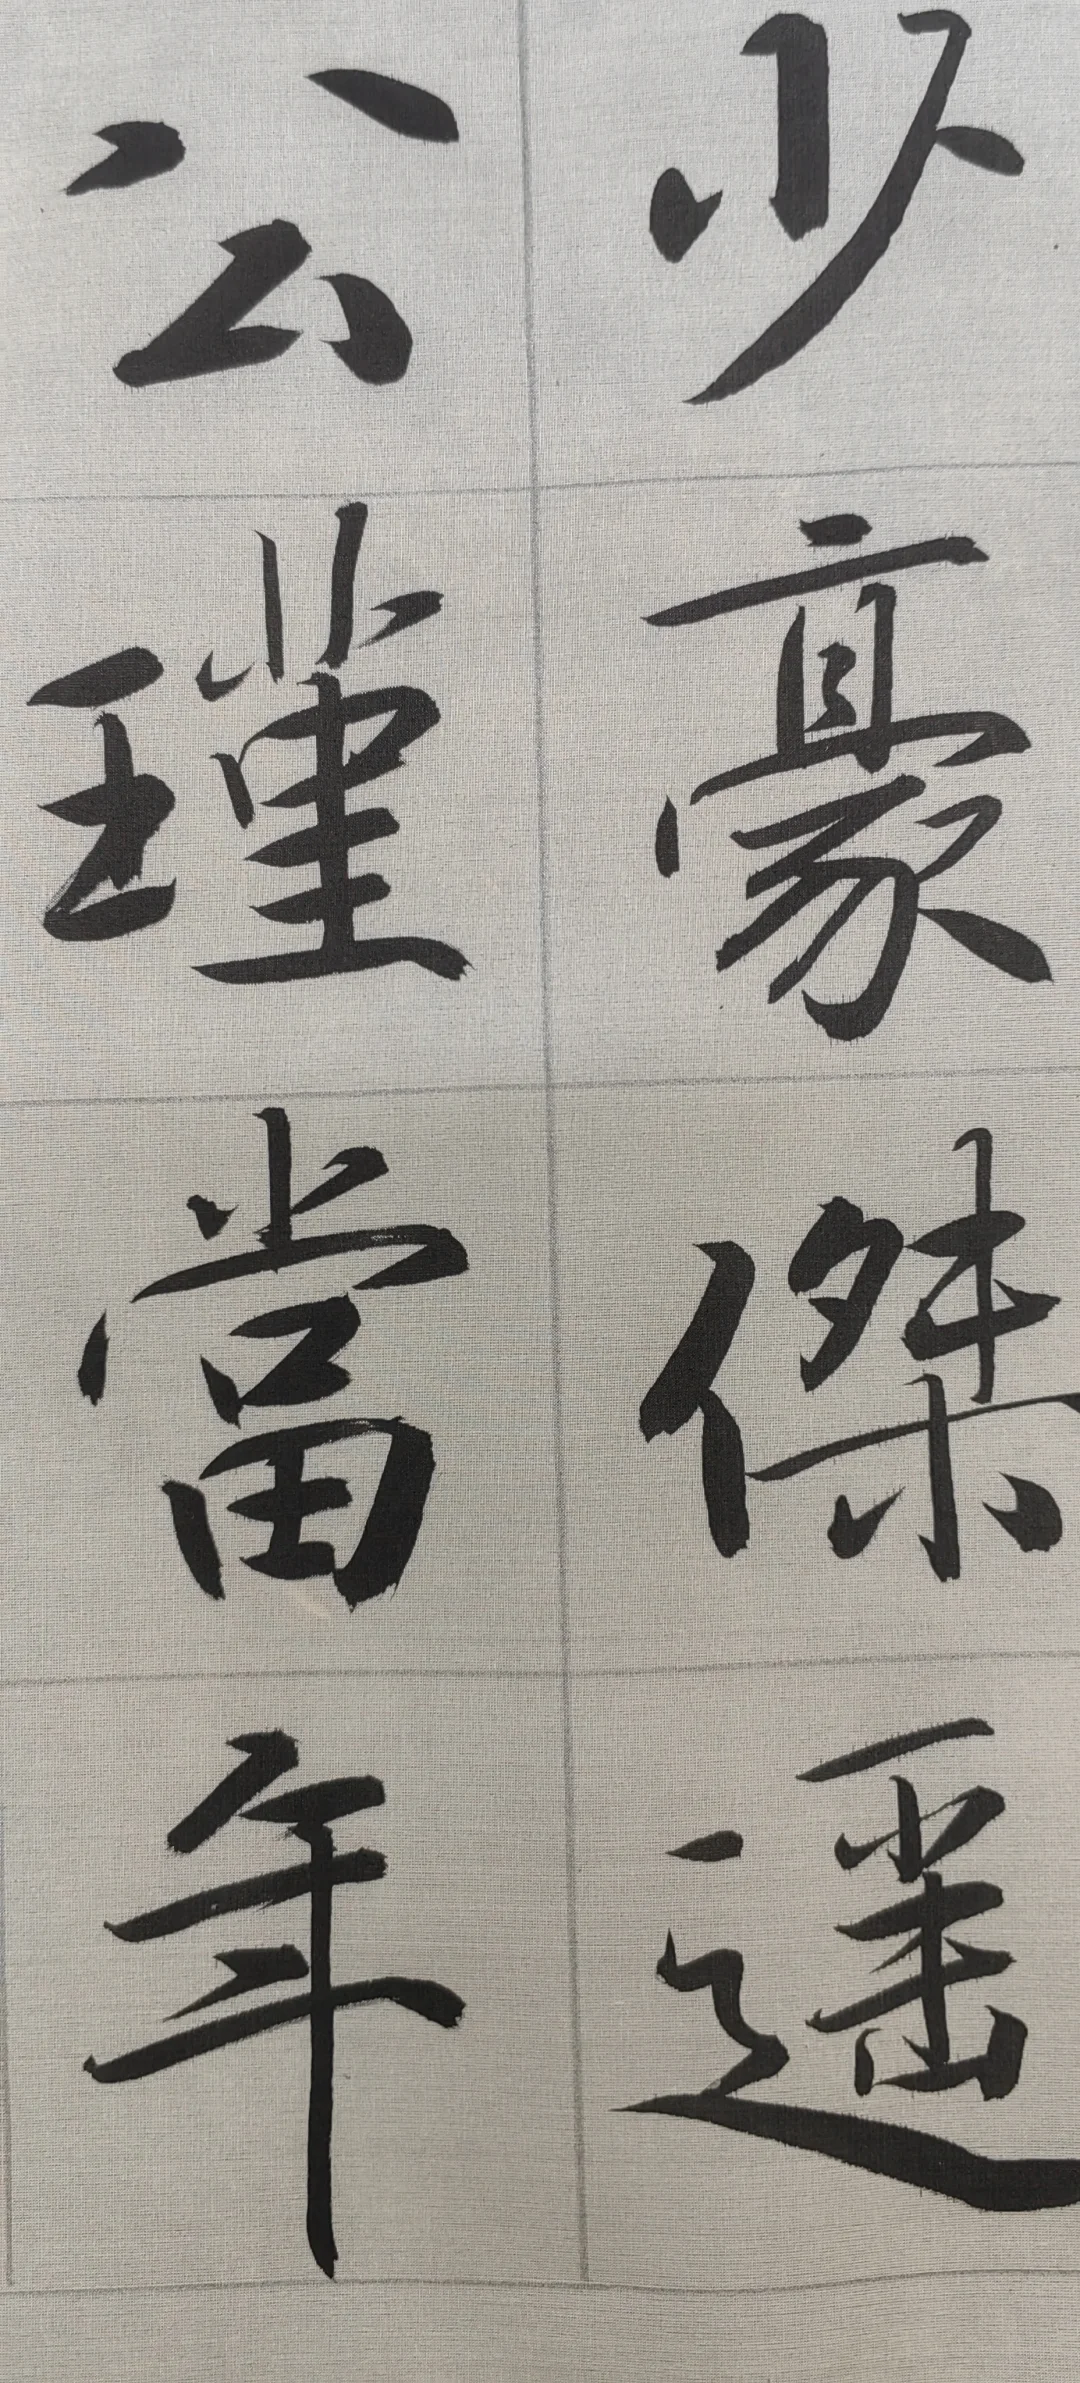 少豪傑遥
公瑾當年